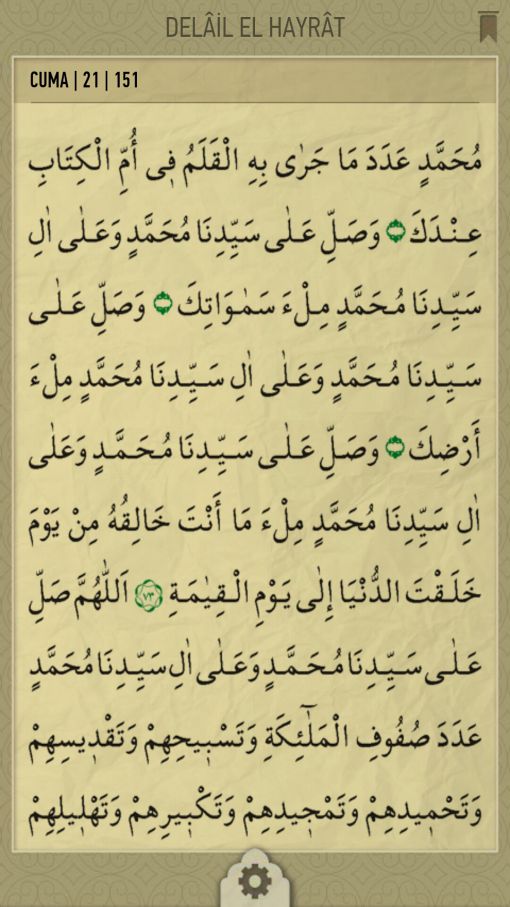 DELÂİL EL HAYRÂT
CUMA | 21 | 151
مُحَمَّدٍ عَدَدَ مَا جَرٰى بِهِ الْقَلَمُ فِى أُمِّ الْكِتَابِ
عِنْدَكَ وَصَلِّ عَلٰى سَيِّدِنَا مُحَمَّدٍ وَعَلٰى اٰلِ
سَيِّدِنَا مُحَمَّدٍ مِلْءَ سَمٰوَاتِكَ وَصَلِّ عَلٰى
سَيِّدِنَا مُحَمَّدٍ وَعَلٰى اٰلِ سَيِّدِنَا مُحَمَّدٍ مِلْءَ
أَرْضِكَ وَصَلِّ عَلٰى سَيِّدِنَا مُحَمَّدٍ وَعَلٰى
اٰلِ سَيِّدِنَا مُحَمَّدٍ مِلْءَ مَا أَنْتَ خَالِقُهُ مِنْ يَوْمَ
خَلَقْتَ الدُّنْيَا إِلٰى يَوْمِ الْقِيٰمَةِ ٧٣ اَللّٰهُمَّ صَلِّ
عَلٰى سَيِّدِنَا مُحَمَّدٍ وَعَلٰى اٰلِ سَيِّدِنَا مُحَمَّدٍ
عَدَدَ صُفُوفِ الْمَلٰٓئِكَةِ وَتَسْبِيحِهِمْ وَتَقْدِيسِهِمْ
وَتَحْمِيدِهِمْ وَتَمْجِيدِهِمْ وَتَكْبِيرِهِمْ وَتَهْلِيلِهِمْ